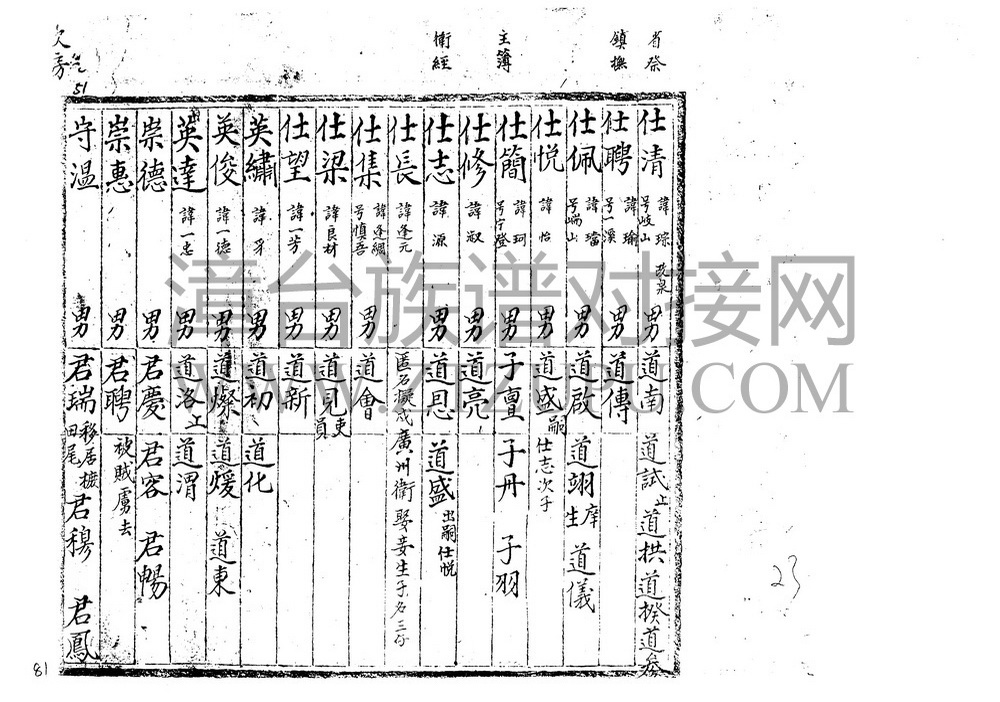 省祭
鎮撫
主簿
衛經
次房
51
仕清 諱琮 號岐山 男 道南 道試 止 道拱 道揆 道參
仕聘 諱瑜 号一溪 男 道傳
仕佩 諱璫 号端山 男 道啟 道翊 庠生 道儀
仕悦 諱怡 男 道盛 嗣 仕志次子
仕簡 諱珂 男 子亶 子丹 子羽
仕修 諱淑 男 道亮
仕志 諱源 男 道恩 道盛 出嗣仕悦
仕長 諱逢元 匿石擬戍廣州衛娶妾生子名三仔
仕集 諱逢綱 号慎吾 男 道會
仕梁 諱良材 男 道見 吏員
仕望 諱一芳 男 道新
英繡 諱 男 道初 道化
英俊 諱一德 男 道燦 道煖 道東
英達 諱一忠 男 道洛 道渭
崇德 男 君慶 君容 君暢
崇惠 男 君聘 被賊虜去
守溫 男 君瑞 移居 田尾 君穆 君鳳
81
23
漳台族谱对接网
WWW.ZTZUPU.COM